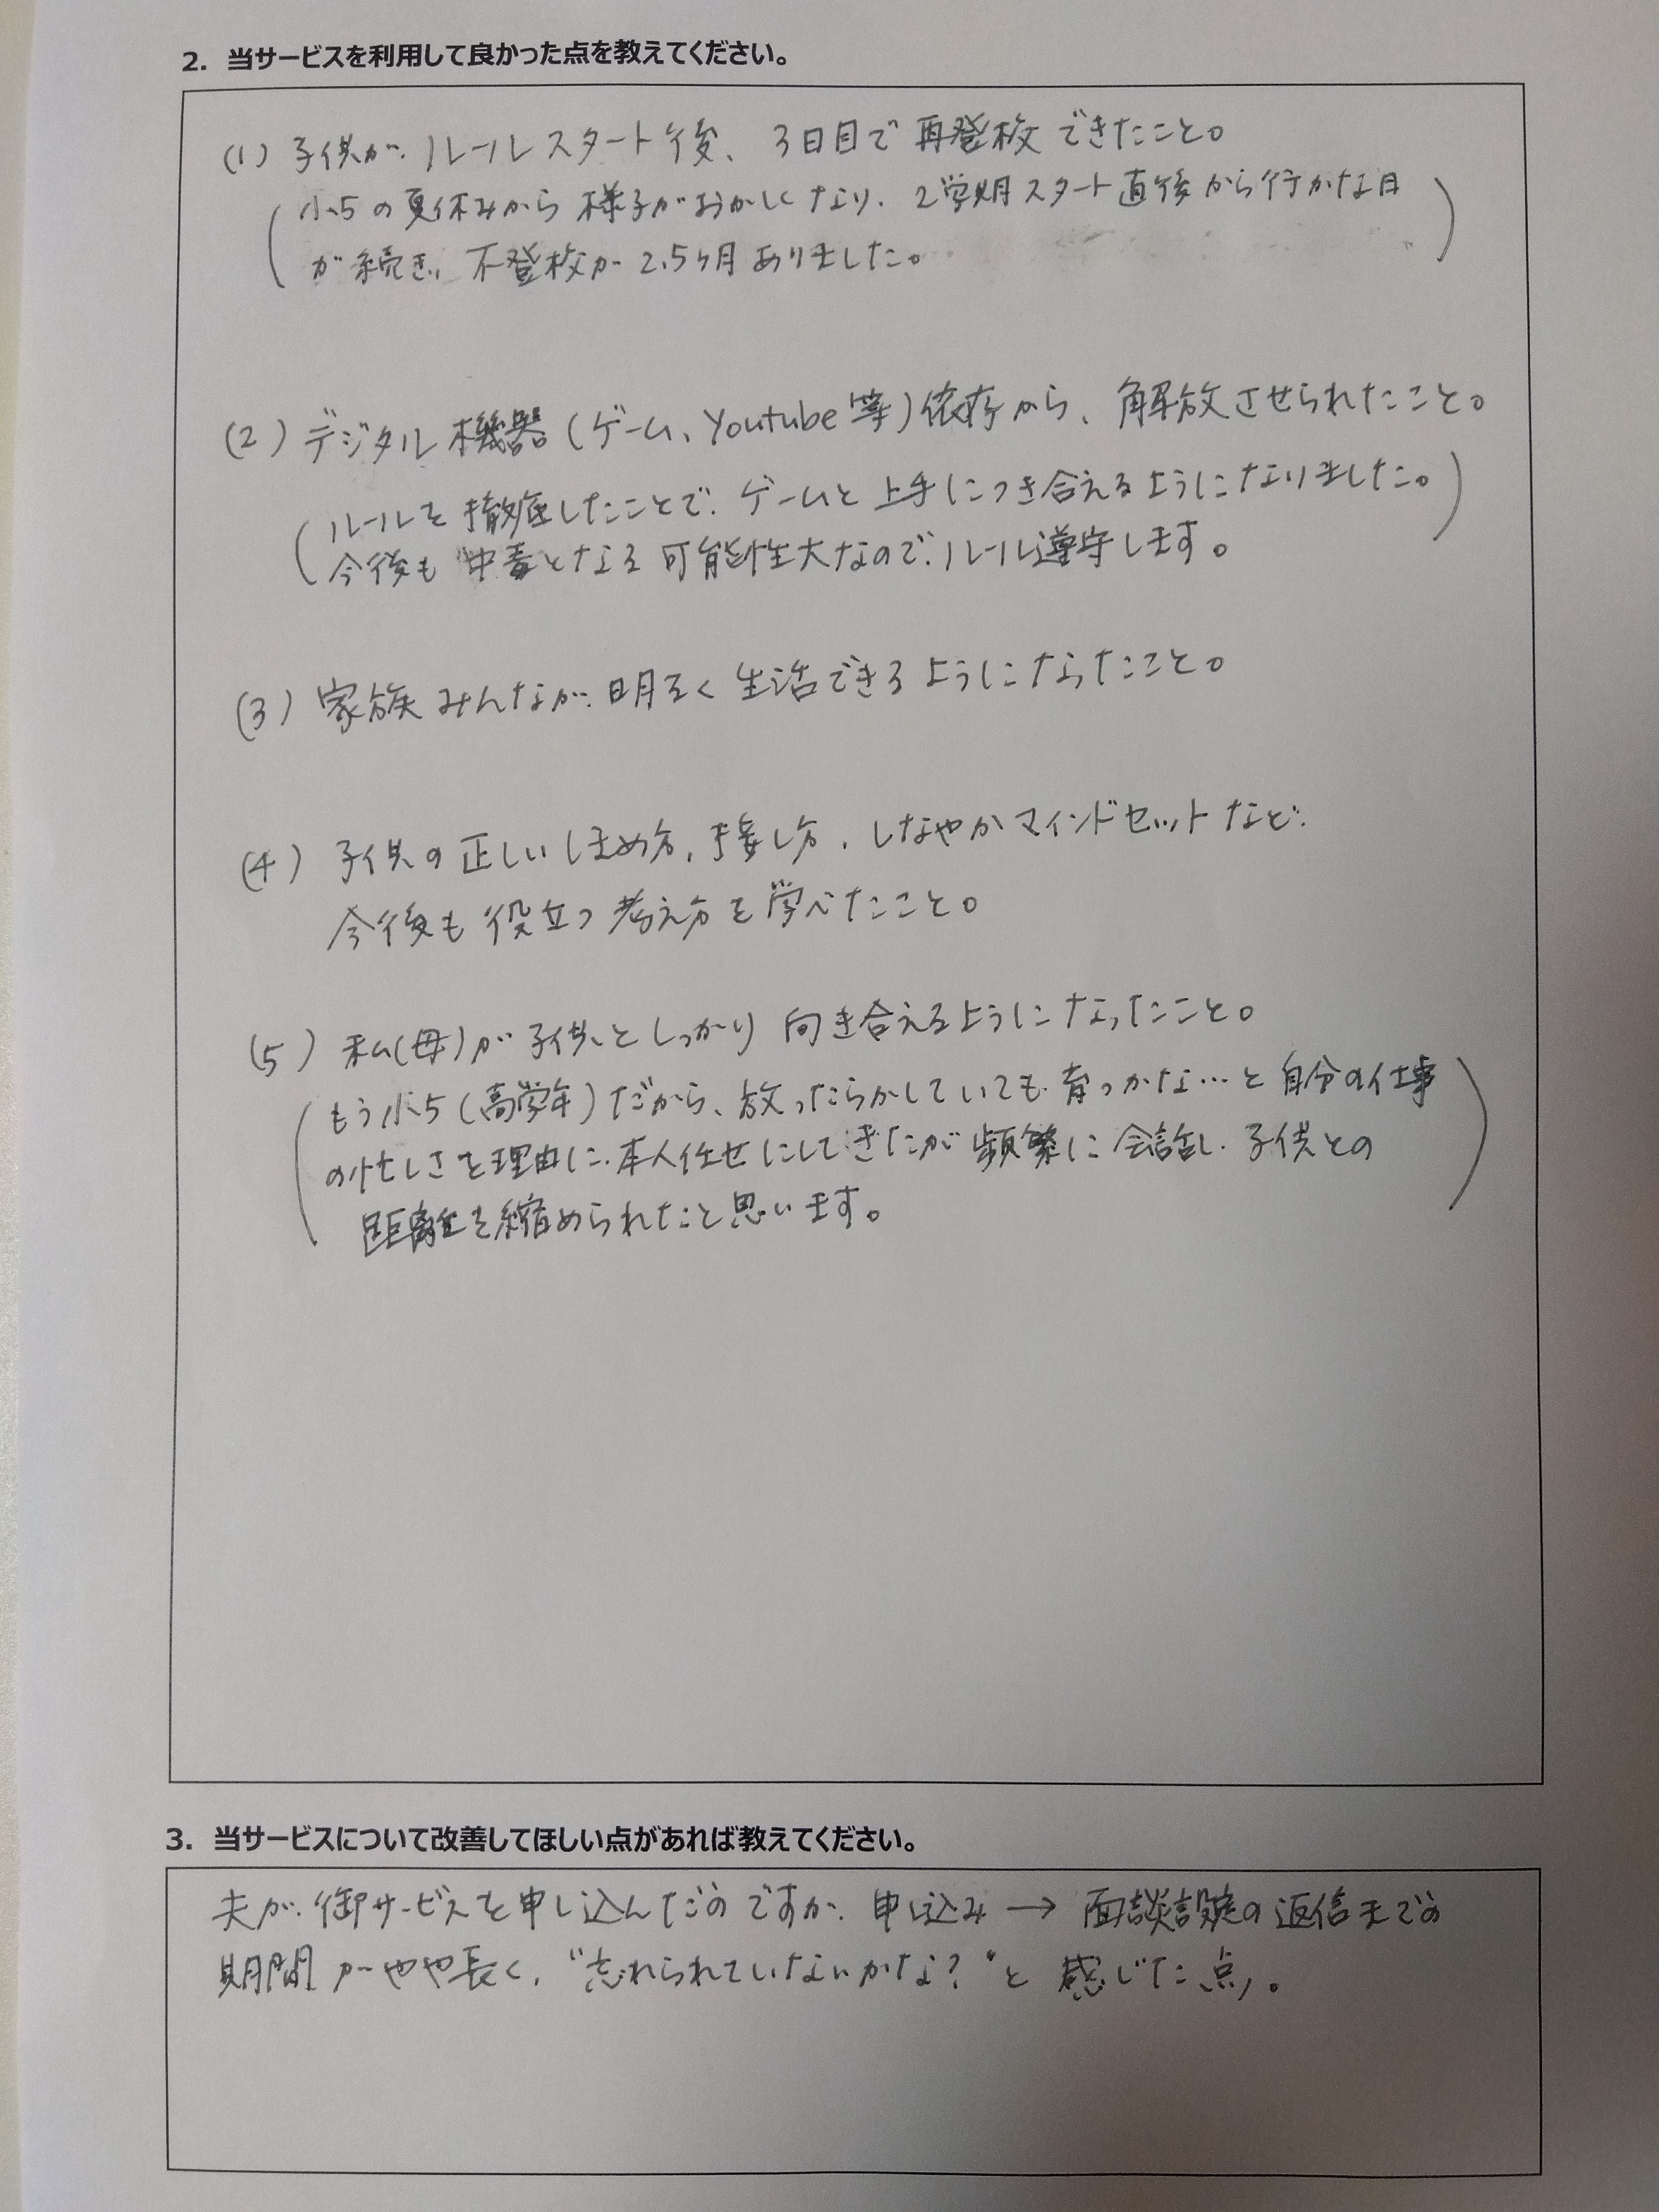 2. 当サービスを利用して良かった点を教えてください。
(1) 子供が、ルールスタート後、3日目で再登校できたこと。
(小5の夏休みから様子がおかしくなり、2学期スタート直後から行かな日
が続き、不登校が2.5ヶ月ありました。)
(2) デジタル機器(ゲーム、Youtube等)依存から、解放させられたこと。
(ルールを徹底したことで、ゲームと上手につき合えるようになりました。
今後も中毒となる可能性大なので、ルール遵守します。)
(3) 家族みんなが、明るく生活できるようになったこと。
(4) 子供の正しいほめ方、接し方、しなやかマインドセットなど、
今後も役立つ考え方を学べたこと。
(5) 私(母)が子供としっかり向き合えるようになったこと。
(もう小5(高学年)だから、放ったらかしていても、育つかな…と自分の仕事
の忙しさを理由に、本人任せにしてきたが頻繁に会話し、子供との
距離を縮められたこと思います。)
3. 当サービスについて改善してほしい点があれば教えてください。
夫が、御サービスを申し込んだのですが、申し込み→面談設定の返信までの
期間がやや長く、“忘れられていないかな?”と感じた点。